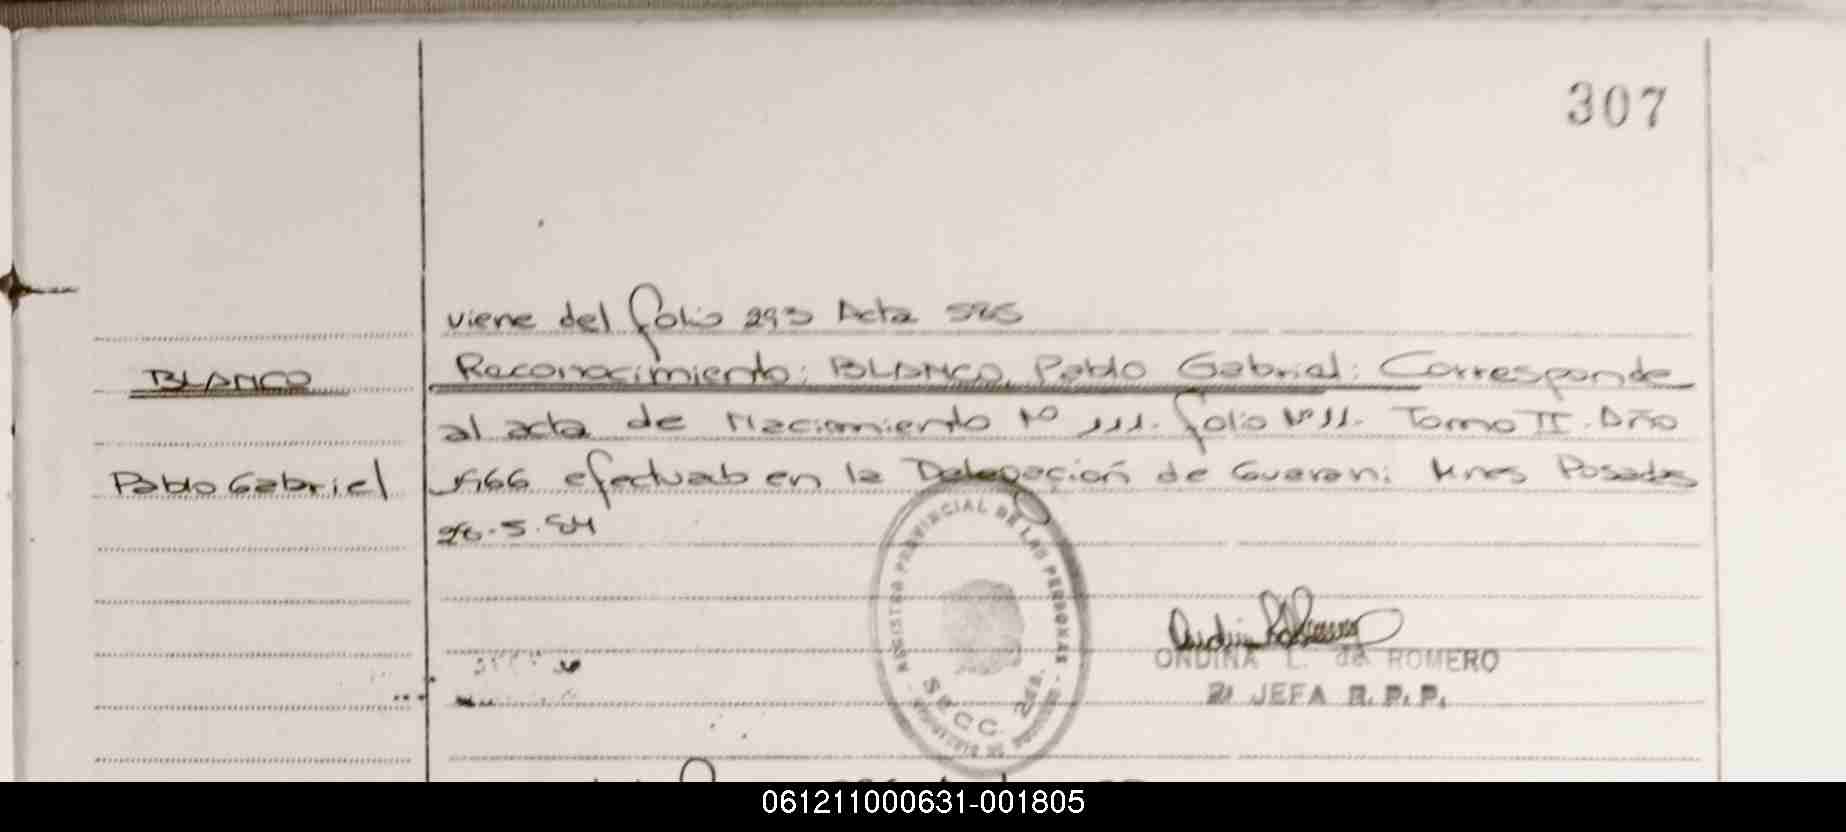 307
viene del folio 293 Acta 525
BLANCO
Reconocimiento: BLANCO, Pablo Gabriel: Corresponde
al acta de Nacimiento Nº 111. folio Nº 11. Tomo II. Año
Pablo Gabriel
1966 efectuab en la Delegación de Guarani Mnes Posadas
26.5.84
REGISTRO PROVINCIAL DE LAS PERSONAS
SECC. 2da.
ORDINA L. de ROMERO
2ª JEFA R.P.P.
061211000631-001805